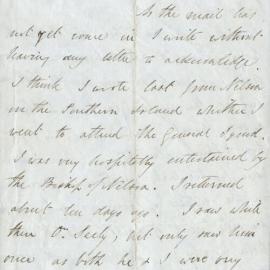 As the mail has
not yet come in I write without
having any letter to acknowledge.
I think I wrote last from Nelson
in the Southern Island whither I
went to attend the General Synod.
I was very hospitably entertained by
the Bishop of Nelson. I returned
about ten days ago. I saw while
there Dr. but only saw him
once as both he & I were very